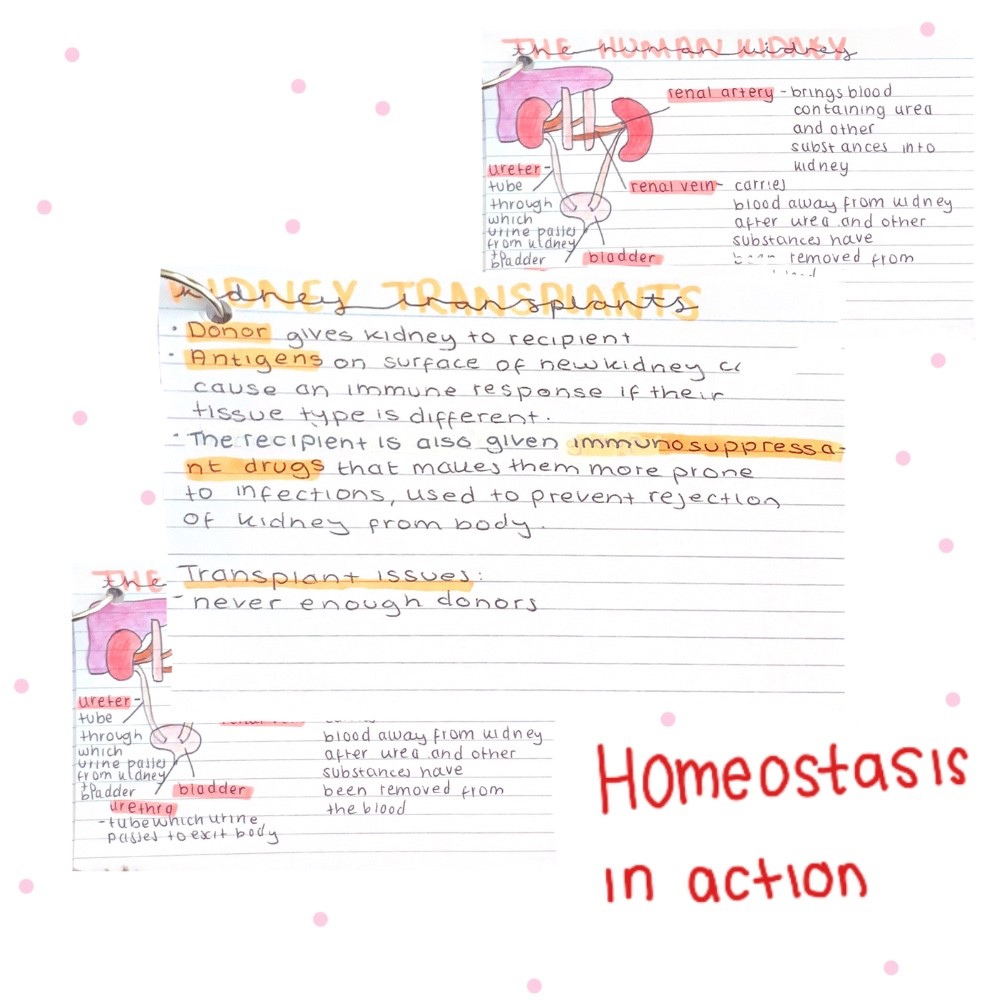 THE HUMAN KIDNEY
the human kidney
renal artery - brings blood
containing urea
and other
substances into
kidney
ureter-
tube
through
which
urine passes
from kidney
to bladder
renal vein- carries
blood away from kidney
after urea and other
substances have
been removed from
bladder
KIDNEY TRANSPLANTS
kidney transplants
· Donor gives kidney to recipient
· Antigens on surface of new kidney
cause an immune response if their
tissue type is different.
· The recipient is also given immunosuppressa-
nt drugs that makes them more prone
to infections, used to prevent rejection
of kidney from body.
Transplant issues:
-never enough donors
THE
the
ureter-
tube
through
which
urine passes
from kidney
to bladder
bladder
urethra
-tube which urine
passes to exit body
blood away from kidney
after urea and other
substances have
been removed from
the blood
Homeostasis
in action